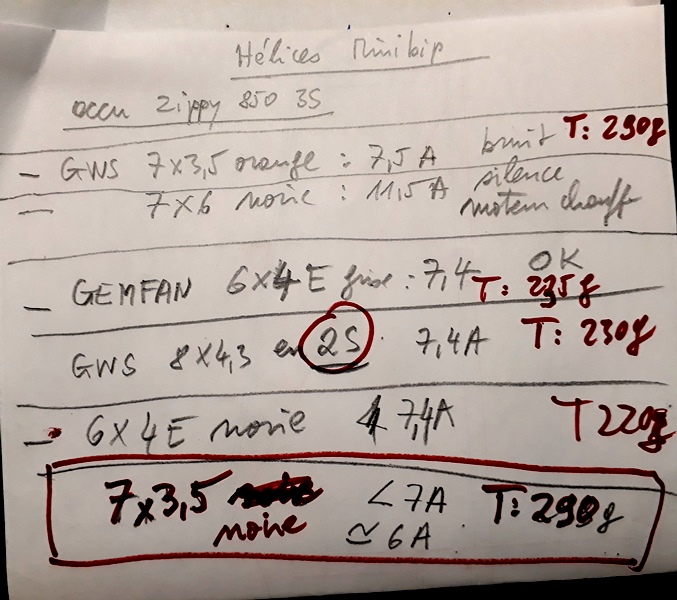 Hélices Minibip
accu Zippy 850 3S
– GWS 7x3,5 orange : 7,5 A bruit T: 290g
– 7x6 noire : 11,5 A silence
moteur chauffe
– GEMFAN 6x4 E grise : 7,4 OK
T: 235g
GWS 8x4,3 en 2S 7,4A T: 230g
– 6x4E noire 7,4A T 220g
7x3,5 noire < 7A T: 290g
≃ 6A